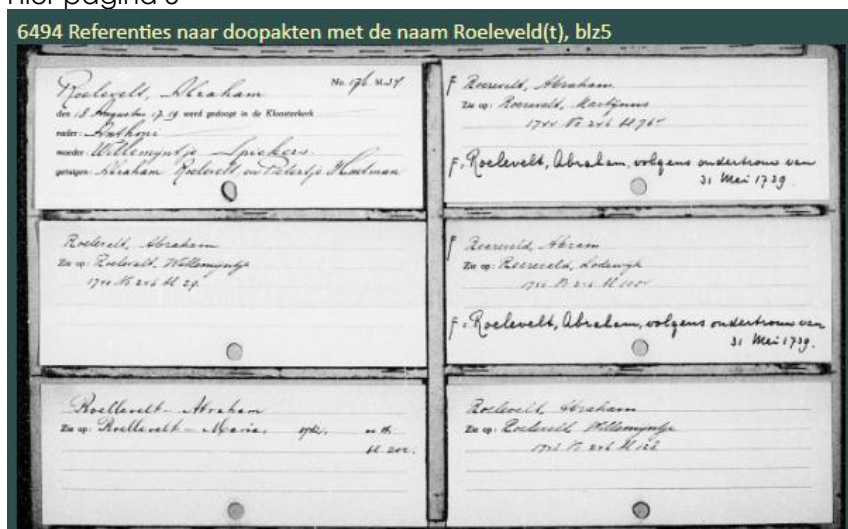 hier pagina 5
6494 Referenties naar doopakten met de naam Roeleveld(t), blz5
Roelevelt, Abraham No. 176 bl. 54
den 18 Augustus 17.19 werd gedoopt in de Kloosterkerk
vader: Anthoni
moeder: Willemijntje Spiekers
getuigen: Abraham Roelevelt en Pietertje Hartman
Roelevelt, Abraham
Zie op: Roelevelt, Willemijntje
1740 No 246 bl 29.
Roellevelt - Abraham
Zie op: Roellevelt - Maria.
bl. 202.
F Roereveld, Abraham
Zie op: Roereveld, Martijnus
1744 No 246 bl 76
F: Roelevelt, Abraham, volgens ondertrouw van
31 Mei 1739.
F Roereveld Abram
Zie op: Roereveld, Lodewijk
F: Roelevelt, Abraham, volgens ondertrouw van
31 Mei 1739.
Roelevelt, Abraham
Zie op: Roelevelt Willemijntje
No 246 bl 128